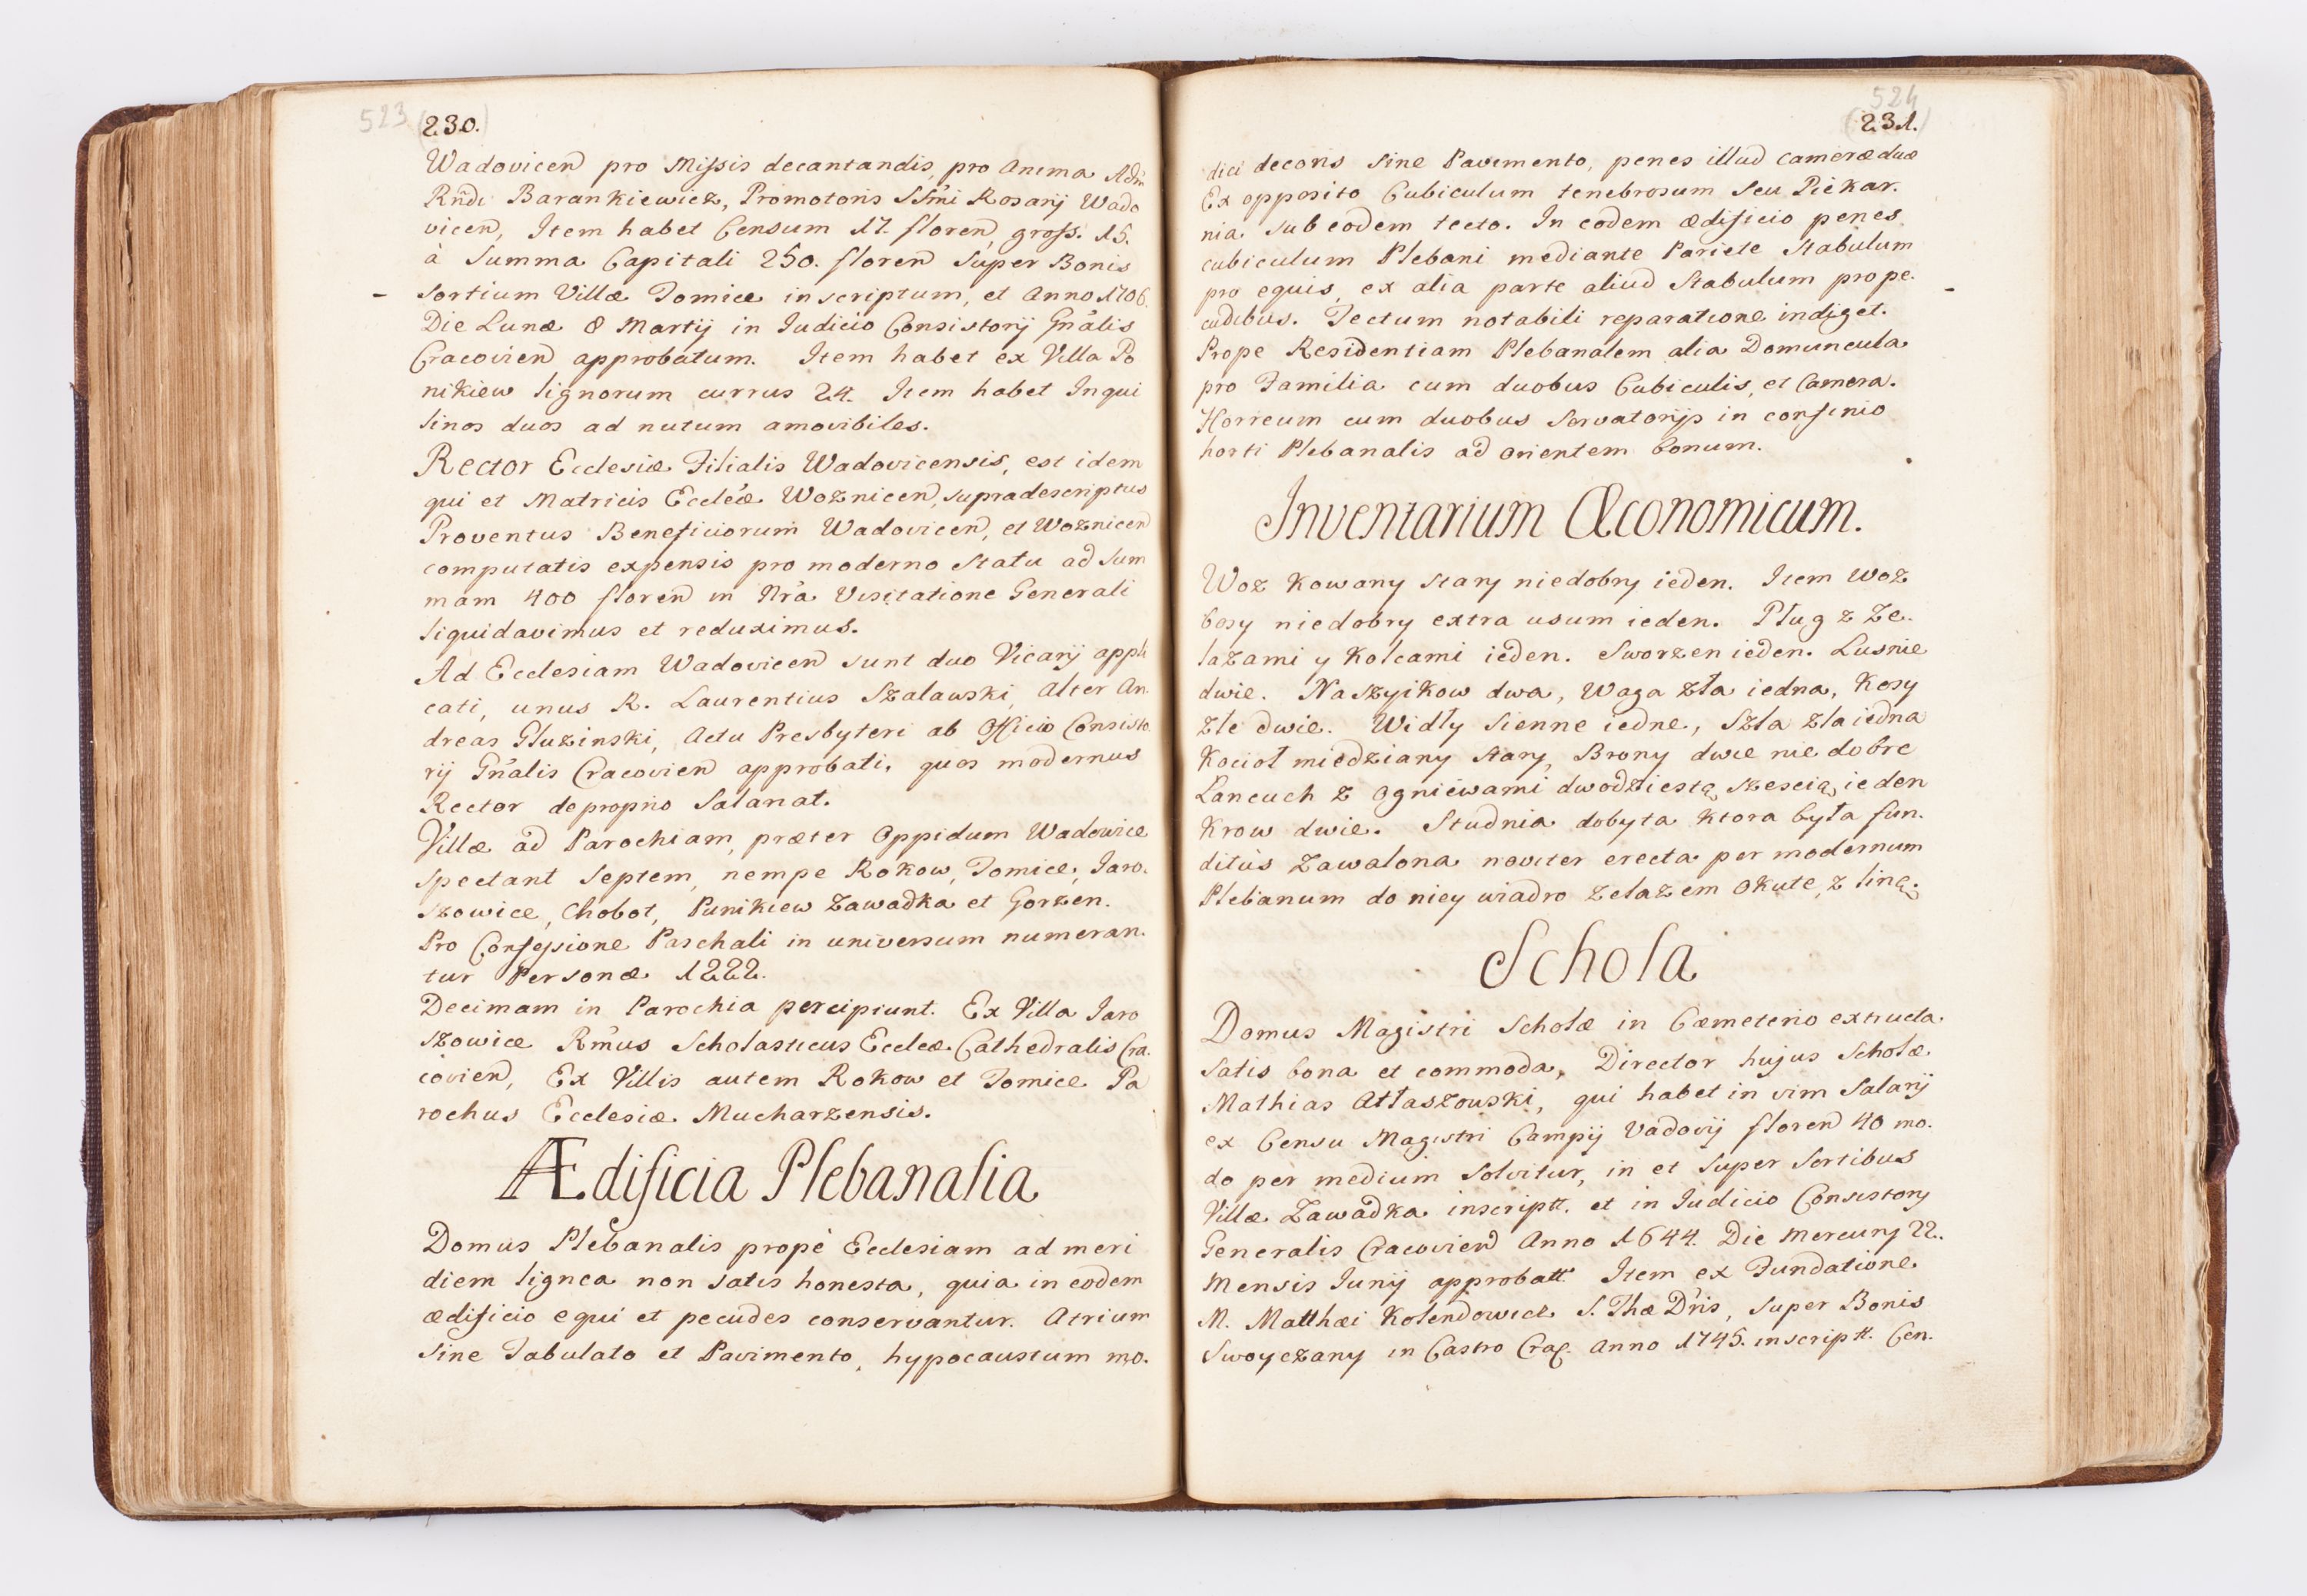 523 (230.)
Wadovicen pro Missis decantandis, pro Anima Adm
Rndi Barankiewicz, Promotoris SSmi Rosarij Wado
vicen, Item habet Censum 17. floren, gross. 15.
à Summa Capitali 250. floren Super Bonis
- Sortium Villæ Tomice inscriptum, et Anno 1706.
Die Lunæ 8 Martij in Iudicio Consistorij Gnâlis
Cracovien approbatum. Item habet ex Villa Po
nikiew lignorum currus 24. Item habet Inqui
linos duos ad nutum amovibiles.
Rector Ecclesiæ Filialis Wadovicensis, est idem
qui et Matricis Eccleæ Woznicen, supradescriptus
Proventus Beneficiorum Wadovicen, et Woznicen
computatis expensis pro moderno Statu ad Sum
mam 400 floren in Nra Visitatione Generali
liquidavimus et reduximus.
Ad Ecclesiam Wadovicen sunt duo Vicarij appli
cati, unus R. Laurentius Szalawski, Alter An.
dreas Gluzinski, Actu Presbyteri ab Officio Consisto.
rij Gnâlis Cracovien approbati, quos modernus
Rector de proprio Salariat.
Villæ ad Parochiam, præter Oppidum Wadowice
spectant Septem, nempe Rokow, Tomice, Jaro.
szowice, Chobot, Punikiew Zawadka et Gorzen.
Pro Confessione Paschali in universum numeran.
tur Personæ 1222.
Decimam in Parochia percipiunt. Ex Villa Jaro
szowice Rmus Scholasticus Eccleæ Cathedralis Cra.
covien, Ex Villis autem Rokow et Tomice Pa
rochus Ecclesiæ Mucharzensis.
Ædificia Plebanalia
Domus Plebanalis propè Ecclesiam ad meri
diem lignea non satis honesta, quia in eodem
ædificio equi et pecudes conservantur. Atrium
Sine Tabulato et Pavimento, hypocaustum mo.
524
(231.)
dici decoris sine Pavimento, penes illud cameræ duæ
Ex opposito Cubiculum tenebrosum seu Piekar.
nia sub eodem tecto. In eodem ædificio penes
cubiculum Plebani mediante Pariete Stabulum
pro equis, ex alia parte aliud Stabulum pro pe. -
cudibus. Tectum notabili reparatione indiget.
Prope Residentiam Plebanalem alia Domuncula
pro Familia cum duobus Cubiculis, et Camera.
Horreum cum duobus Servatorijs in confinio
horti Plebanalis ad orientem bonum.
Inventarium Œconomicum.
Woz kowany stary niedobry ieden. Item woz
bosy niedobry extra usum ieden. Pług z że.
lazami y kolcami ieden. Sworzen ieden. Lusnie
dwie. Naszyikow dwa, Waga zła iedna, Kosy
złe dwie. Widły Sienne iedne, Szla zla iedna
Kocioł miedziany stary, Brony dwie nie dobre
Lancuch z ogniewami dwodziestą szescią ieden
Krow dwie. Studnia dobyta ktora była fun.
ditùs zawalona noviter erecta per modernum
Plebanum do niey wiadro zelazem okute, z liną.
Schola
Domus Magistri Scholæ in Cæmeterio extructa
Satis bona et commoda, Director hujus Scholæ
Mathias Ałłaszowski, qui habet in vim Salarij
ex Censu Magistri Campij Vadovij floren 40 mo.
do per medium Solvitur, in et super Sortibus
Villæ Zawadka inscriptt. et in Iudicio Consistorij
Generalis Cracovien Anno 1644. Die Mercurij 22.
Mensis Iunij approbatt. Item ex Fundatione
M. Matthæi Kolendowicz S. Thæ Dris, Super Bonis
Swoyczany in Castro Crac. Anno 1745. inscriptt. Cen.